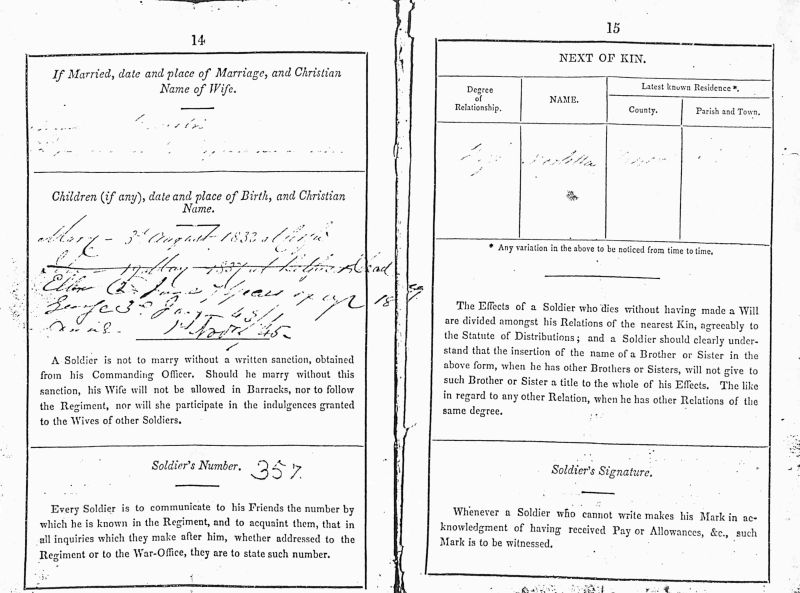 14
If Married, date and place of Marriage, and Christian
Name of Wife.
Children (if any), date and place of Birth, and Christian
Name.
Mary - 3d August 1833 at
May 1837 at dead
Ellen years of age 18
George 3d
1st Novr 45
A Soldier is not to marry without a written sanction, obtained
from his Commanding Officer. Should he marry without this
sanction, his Wife will not be allowed in Barracks, nor to follow
the Regiment, nor will she participate in the indulgences granted
to the Wives of other Soldiers.
Soldier's Number. 357.
Every Soldier is to communicate to his Friends the number by
which he is known in the Regiment, and to acquaint them, that in
all inquiries which they make after him, whether addressed to the
Regiment or to the War-Office, they are to state such number.
15
NEXT OF KIN.
Degree
of
Relationship.
NAME.
Latest known Residence*.
County.
Parish and Town.
* Any variation in the above to be noticed from time to time.
The Effects of a Soldier who dies without having made a Will
are divided amongst his Relations of the nearest Kin, agreeably to
the Statute of Distributions; and a Soldier should clearly under-
stand that the insertion of the name of a Brother or Sister in the
above form, when he has other Brothers or Sisters, will not give to
such Brother or Sister a title to the whole of his Effects. The like
in regard to any other Relation, when he has other Relations of the
same degree.
Soldier's Signature.
Whenever a Soldier who cannot write makes his Mark in ac-
knowledgment of having received Pay or Allowances, &c., such
Mark is to be witnessed.